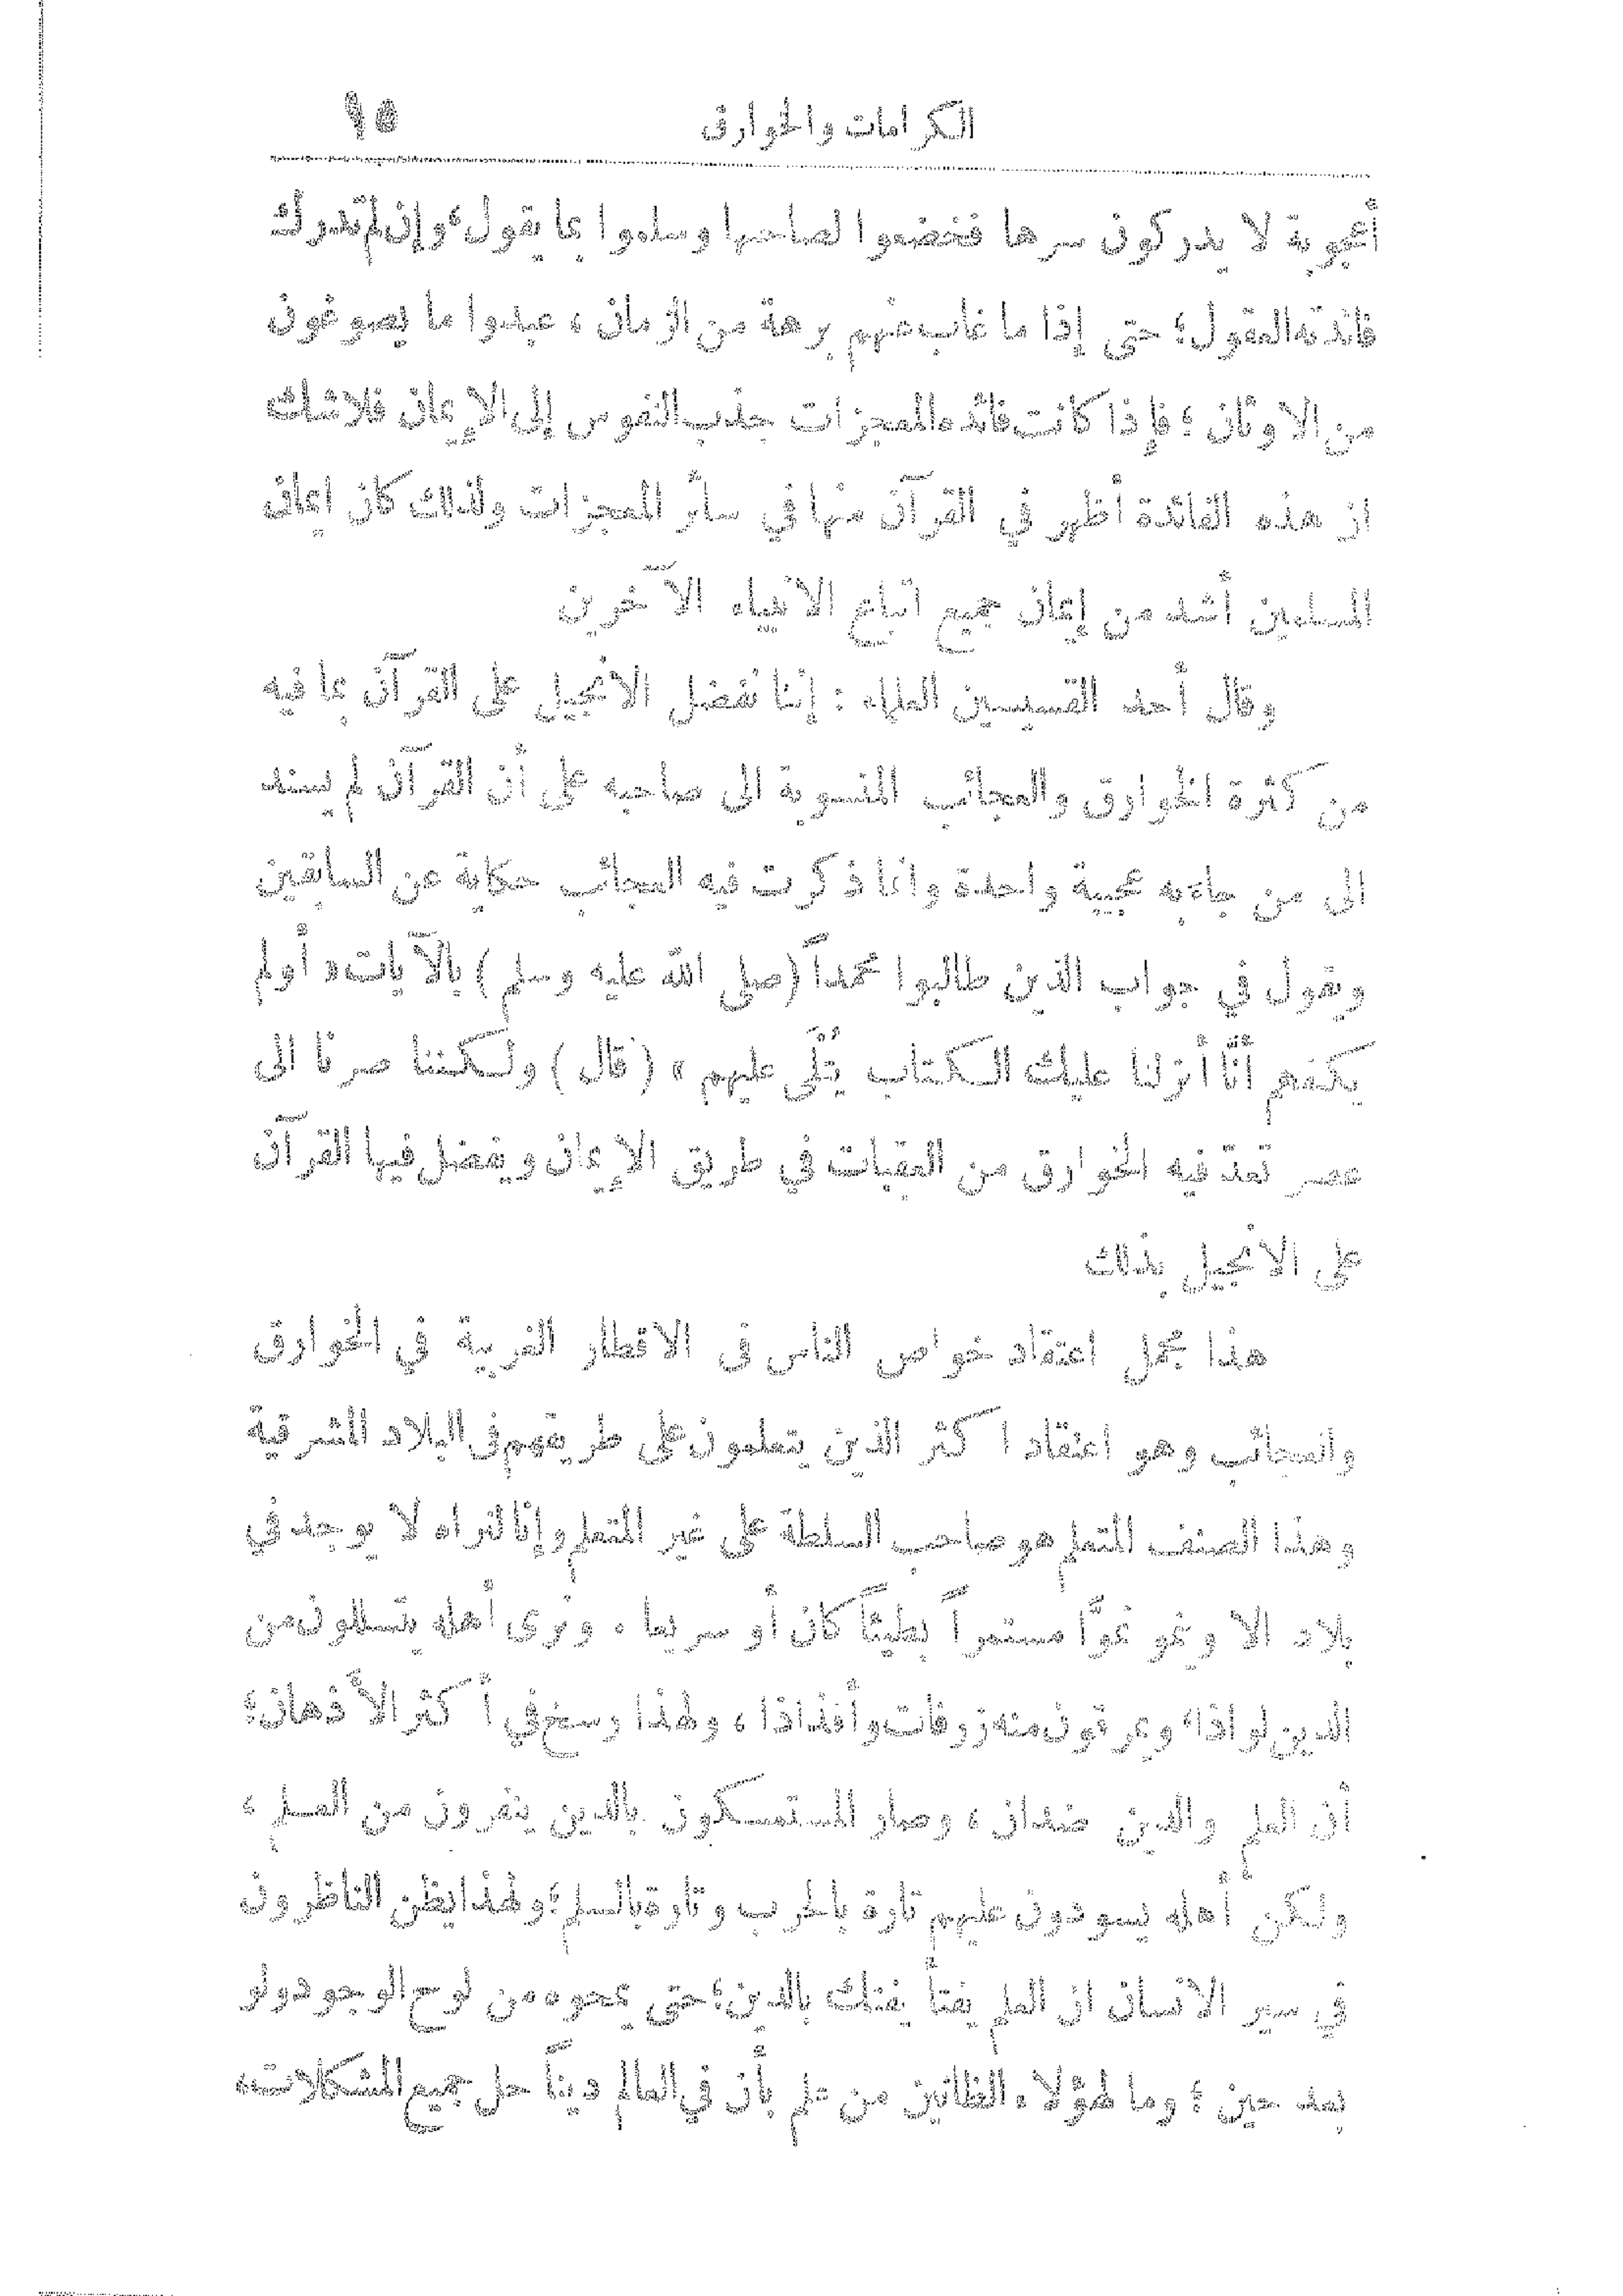 الكرامات والخوارق ٩٥
أعجوبة لا يدركون سرها فخضعوا لصاحبها وسلموا بما يقول؛ وإن لم تدرك
فائدته العقول؛ حتى إذا ما غاب عنهم برهة من الزمان، عبدوا ما يصوغون
من الاوثان؛ فإذا كانت فائدة المعجزات جذب النفوس إلى الإيمان فلا شك
ان هذه الفائدة أظهر في القرآن منها في سائر المعجزات ولذلك كان ايمان
المسلمين أشد من إيمان جميع اتباع الانبياء الآخرين
وقال أحد القسيسين العلماء : إننا نفضل الانجيل على القرآن بما فيه
من كثرة الخوارق والعجائب المنسوبة الى صاحبه على أن القرآن لم يسند
الى من جاء به عجيبة واحدة وانما ذكرت فيه العجائب حكاية عن السابقين
ويقول في جواب الذين طالبوا محمداً (صلى الله عليه وسلم) بالآيات « أولم
يكفهم أنّا أنزلنا عليك الكتاب يُتْلَى عليهم » (قال) ولكننا صرنا الى
عصر تعدّ فيه الخوارق من العقبات في طريق الإيمان ويفضل فيها القرآن
على الانجيل بذلك
هذا مجمل اعتقاد خواص الناس فى الاقطار الغربية في الخوارق
والعجائب وهو اعتقاد اكثر الذين يتعلمون على طريقتهم فى البلاد المشرقية
وهذا الصنف المتعلم هو صاحب السلطة على غير المتعلم وإنا لنراه لا يوجد في
بلاد الا وينمو نموًّا مستمراً بطيئاً كان أو سريعا . ونرى أهله يتسللون من
الدين لواذا، ويمرقون منه زرافات وأفذاذا ، ولهذا رسخ في أكثر الأذهان؛
أن العلم والدين ضدان ، وصار المستمسكون بالدين ينفرون من العلم ،
ولكن أهله يسودون عليهم تارة بالحرب وتارة بالسلم؛ ولهذا يظن الناظرون
في سير الانسان ان العلم يفتأ يفتك بالدين؛ حتى يمحوه من لوح الوجود ولو
بعد حين ؛ وما لهؤلاء الظانين من علم بأن في العالم ديناً حل جميع المشكلات،